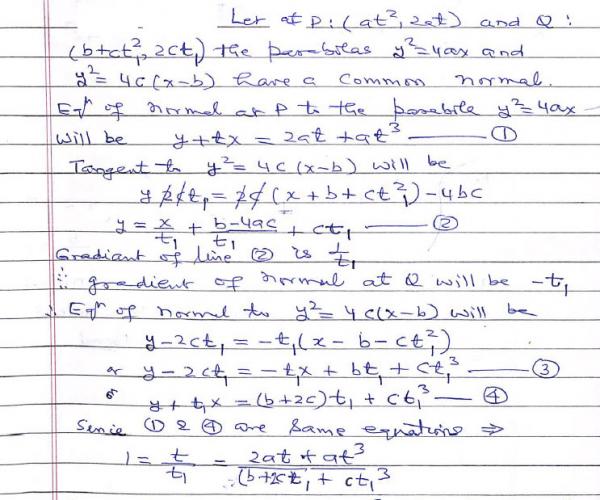 Let at P: (at², 2at) and Q:
(b+ct₁², 2ct₁) the parabolas y²=4ax and
y² = 4c(x-b) have a common normal.
Eqⁿ of normal at P to the parabola y²=4ax
will be y+tx = 2at +at³ —— ①
Tangent to y² = 4c(x-b) will be
y 2ct₁ = 2c (x+b+ct₁²) -4bc
y = x/t₁ + (b-4ac)/t₁ + ct₁ —— ②
Gradiant of line ② is 1/t₁
∴ gradient of normal at Q will be -t₁
∴ Eqⁿ of normal to y²=4c(x-b) will be
y-2ct₁ = -t₁(x - b - ct₁²)
or y-2ct₁ = -t₁x + bt₁ + ct₁³ —— ③
or y + t₁x = (b+2c)t₁ + ct₁³ —— ④
Sence ① & ④ are same equations ⇒
1 = t/t₁ = (2at + at³)/((b+2c)t₁ + ct₁³)